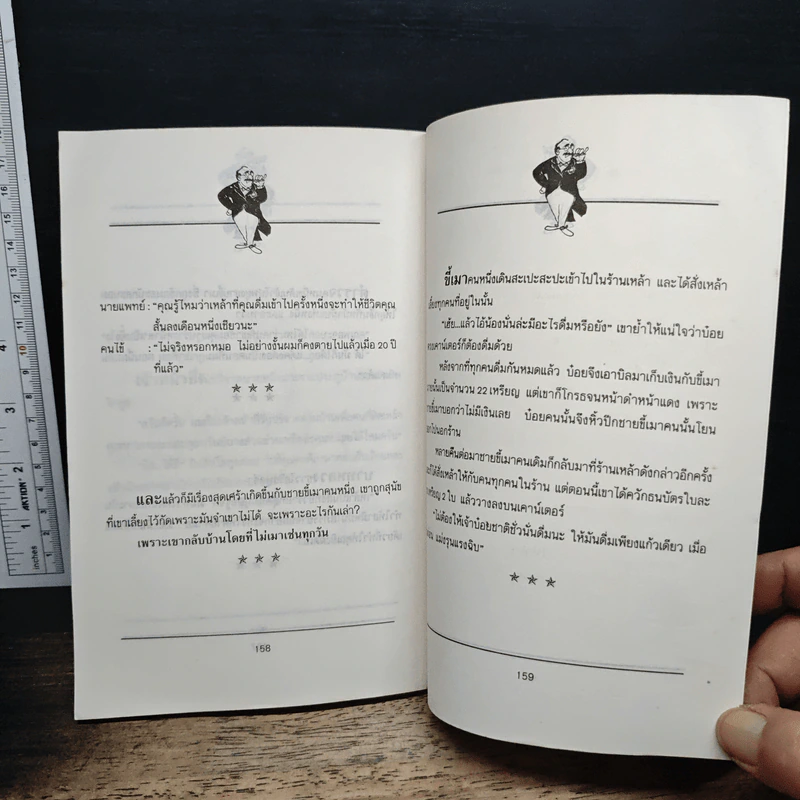 นายแพทย์ : "คุณรู้ไหมว่าเหล้าที่คุณดื่มเข้าไปครั้งหนึ่งจะทำให้ชีวิตคุณ
สั้นลงเดือนหนึ่งเชียวนะ"
คนไข้ : "ไม่จริงหรอกหมอ ไม่อย่างงั้นผมก็คงตายไปแล้วเมื่อ 20 ปี
ที่แล้ว"
และแล้วก็มีเรื่องสุดเศร้าเกิดขึ้นกับชายขี้เมาคนหนึ่ง เขาถูกสุนัข
ที่เขาเลี้ยงไว้กัดเพราะมันจำเขาไม่ได้ จะเพราะอะไรกันเล่า?
เพราะเขากลับบ้านโดยที่ไม่เมาเช่นทุกวัน
158
ขี้เมาคนหนึ่งเดินสะเปะสะปะเข้าไปในร้านเหล้า และได้สั่งเหล้า
เลี้ยงทุกคนที่อยู่ในนั้น
"เฮ้ย...แล้วไอ้น้องนั่นล่ะมีอะไรดื่มหรือยัง" เขาย้ำให้แน่ใจว่าบ๋อย
เคาน์เตอร์ก็ต้องดื่มด้วย
หลังจากที่ทุกคนดื่มกันหมดแล้ว บ๋อยจึงเอาบิลมาเก็บเงินกับขี้เมา
รายนั้นเป็นจำนวน 22 เหรียญ แต่เขาก็โกรธจนหน้าดำหน้าแดง เพราะ
ขี้เมาบอกว่าไม่มีเงินเลย บ๋อยคนนั้นจึงหิ้วปีกชายขี้เมาคนนั้นโยน
ออกไปนอกร้าน
หลายคืนต่อมาชายขี้เมาคนเดิมก็กลับมาที่ร้านเหล้าดังกล่าวอีกครั้ง
ได้สั่งเหล้าให้กับคนทุกคนในร้าน แต่ตอนนี้เขาได้ควักธนบัตรใบละ
เหรียญ 2 ใบ แล้ววางลงบนเคาน์เตอร์
"ไม่ต้องให้เจ้าบ๋อยชาติชั่วนั่นดื่มนะ ให้มันดื่มเพียงแก้วเดียว เมื่อ
แม่งรุนแรงฉิบ"
159
inches
AKTION